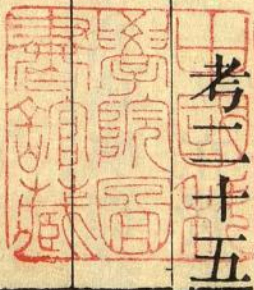 考二十五
中國科
學院圖
書館藏